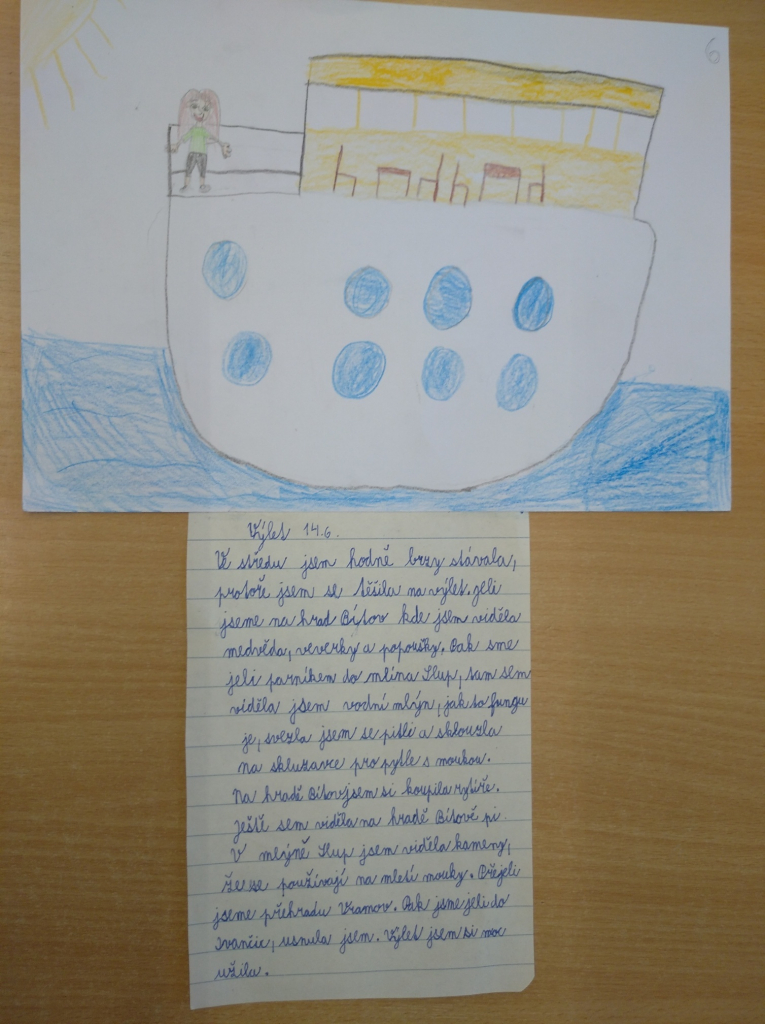 6
Výlet 14.6.
Ve středu jsem hodně brzy stávala,
protože jsem se těšila na výlet. Jeli
jseme na hrad Bítov kde jsem viděla
medvěda, veverky a popoušky. Pak sme
jeli parníkem do mlína Slup, tam sem
viděla jsem vodní mlýn, jak to fungu
je, svezla jsem se pitli a sklouzla
na skluzavce pro pytle s moukou.
Na hradě Bítov jsem si koupila rytíře.
Ještě sem viděla na hradě Bítově
V mlýně Slup jsem viděla kameny,
že se používají na mletí mouky. Přejeli
jsme přehradu Vramov. Pak jsme jeli do
Ivančic, usnula jsem. Výlet jsem si moc
užila.